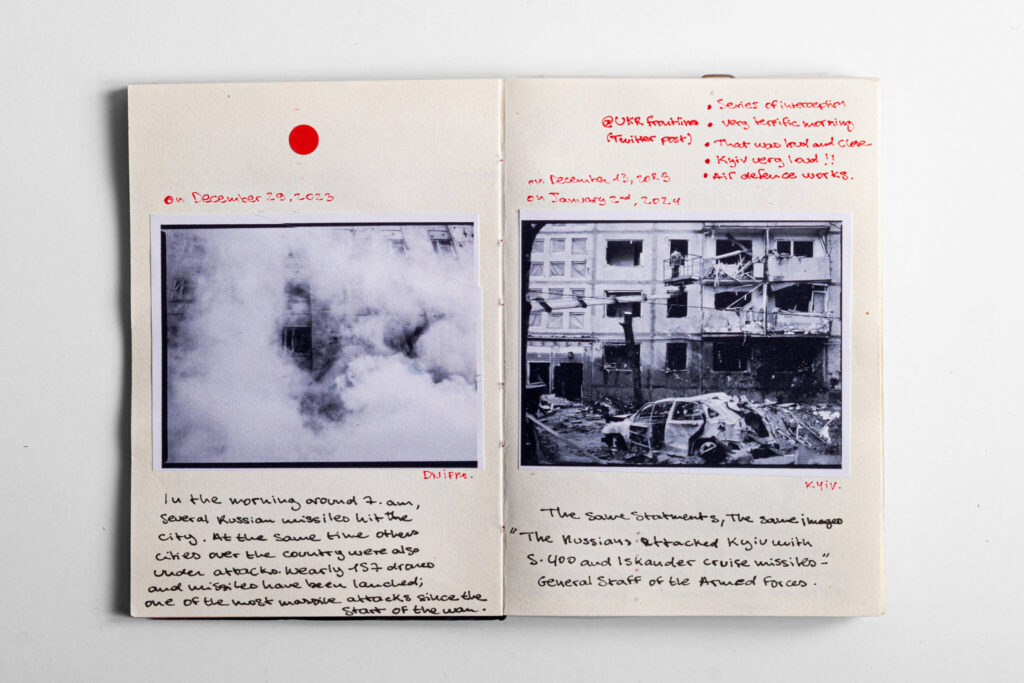 on December 29, 2023
Dnipro.
In the morning around 7. am,
several Russian missiles hit the
city. At the same time others
cities over the country were also
under attacks. Nearly 157 drones
and missiles have been lanched;
one of the most massive attacks since the
start of the war.
@UKR Frontline
(Twitter post)
• Series of interception
• very terrific morning
• That was loud and close
• Kyiv very loud !!
• Air defence works.
on December 13, 2023
on January 2nd, 2024
Kyiv.
The same statments, The same images
"The Russians attacked Kyiv with
S.400 and Iskander cruise missiles-"
General Staff of the Armed Forces.